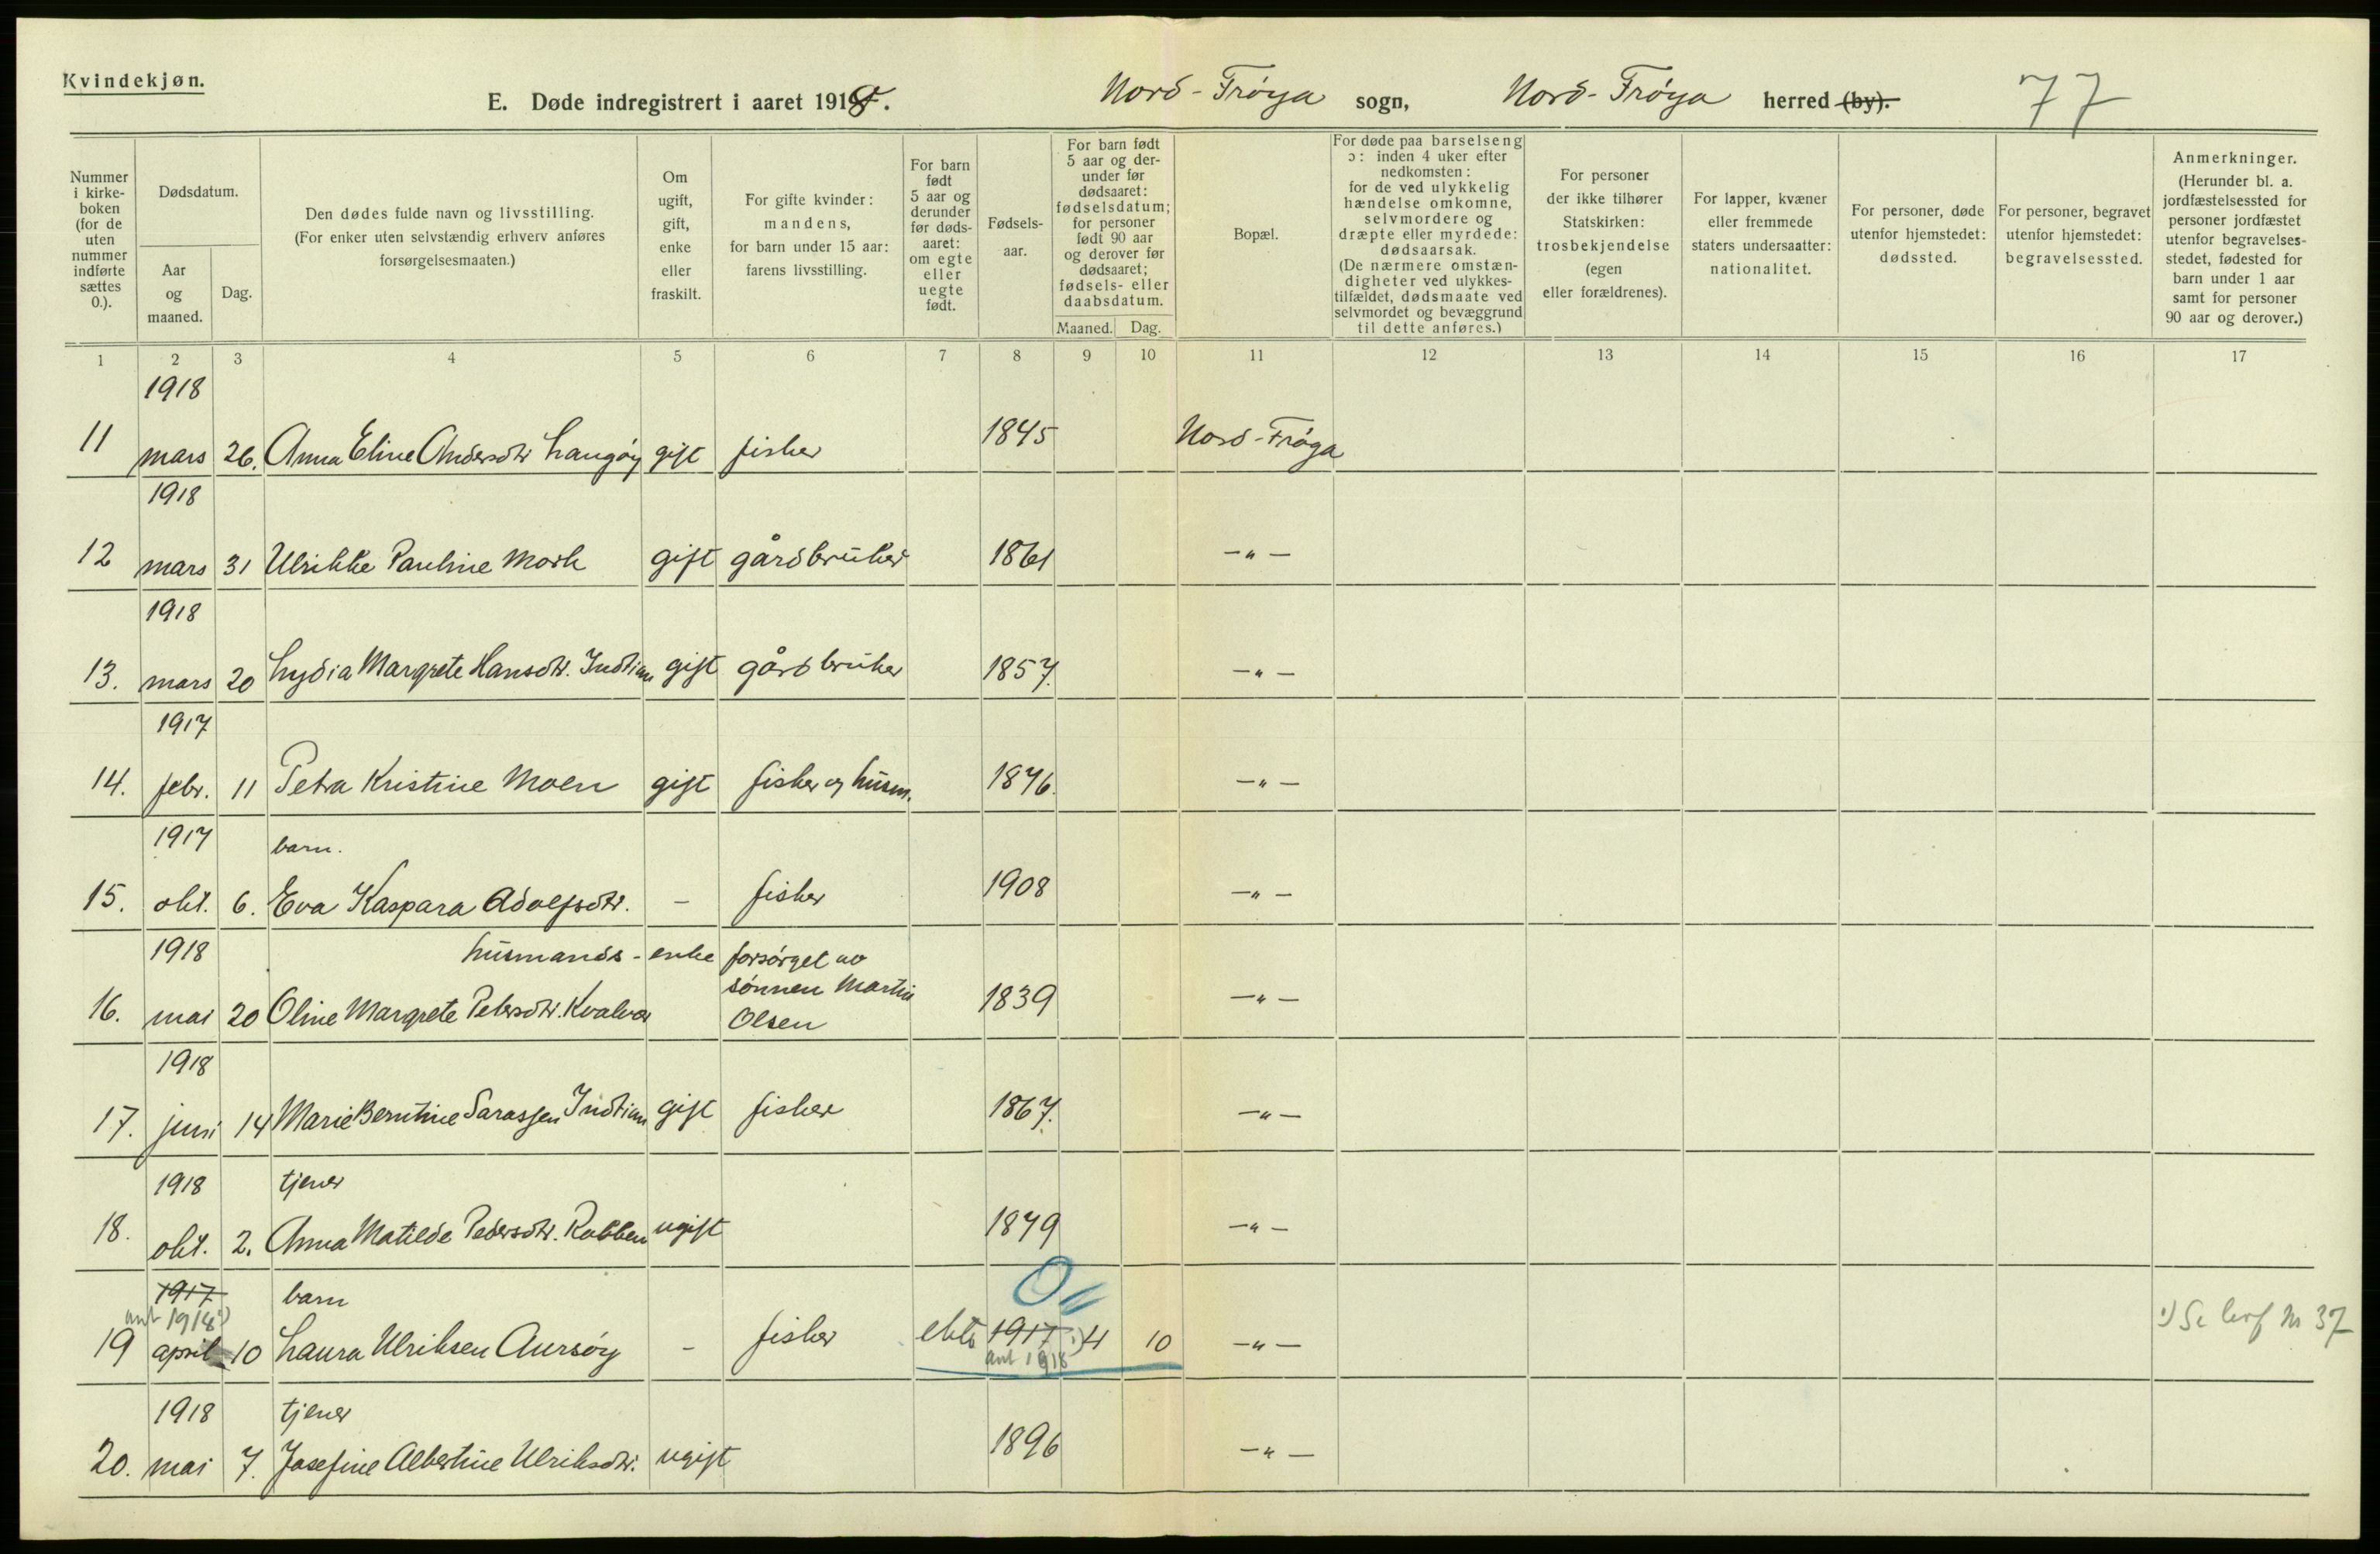 Kvindekjøn.
E. Døde indregistrert i aaret 1918.
Nord-Frøya sogn,
Nord-Frøya herred (by).
77
Nummer i kirkeboken (for de uten nummer indførte sættes 0.).
Dødsdatum.
Aar og maaned.
Dag.
Den dødes fulde navn og livsstilling.
(For enker uten selvstændig erhverv anføres forsørgelsesmaaten.)
Om ugift, gift, enke eller fraskilt.
For gifte kvinder: mandens, for barn under 15 aar: farens livsstilling.
For barn født 5 aar og derunder før dødsaaret: om egte eller uegte født.
Fødselsaar.
For barn født 5 aar og derunder før dødsaaret: fødselsdatum; for personer født 90 aar og derover før dødsaaret; fødsels- eller daabsdatum.
Maaned. Dag.
Bopæl.
For døde paa barselseng ɔ: inden 4 uker efter nedkomsten: for de ved ulykkelig hændelse omkomne, selvmordere og dræpte eller myrdede: dødsaarsak. (De nærmere omstændigheter ved ulykkestilfældet, dødsmaate ved selvmordet og bevæggrund til dette anføres.)
For personer der ikke tilhører Statskirken: trosbekjendelse (egen eller forældrenes).
For lapper, kvæner eller fremmede staters undersaatter: nationalitet.
For personer, døde utenfor hjemstedet: dødssted.
For personer, begravet utenfor hjemstedet: begravelsessted.
Anmerkninger. (Herunder bl. a. jordfæstelsessted for personer jordfæstet utenfor begravelsesstedet, fødested for barn under 1 aar samt for personer 90 aar og derover.)
1 2 3 4 5 6 7 8 9 10 11 12 13 14 15 16 17
1918
11 mars 26. Anna Eline Andersdtr Langøy gift fisker 1845 Nord-Frøya
1918
12 mars 31 Ulrikke Pauline Mork gift gårdbruker 1861 -"-
1918
13. mars 20 Lydia Margrete Hansdtr. Indtian gift gårdbruker 1857. -"-
1917
14. febr. 11 Petra Kristine Moen gift fisker og husm. 1876. -"-
1917 barn.
15. okt. 6. Eva Kaspara Adolfsdtr. - fisker 1908 -"-
1918 husmands- enke forsørget av
sønnen Martin
16. mai 20 Oline Margrete Petersdtr. Kvalvær Olsen 1839 -"-
1918
17. juni 14 Marie Berntine Indtian gift fisker 1867. -"-
1918 tjener
18. okt. 2. Anna Matilde Pedersdtr. Rabben ugift 1879 -"-
1917 barn
ant 1918 1)
19 april 10 Laura Ulriksen Aursøy - fisker ekte 1917 1) 4 10 -"-
ant 1918
1) Se lerf Nr 37
1918 tjener
20. mai 7. Josefine Albertine Ulriksdtr. ugift 1896 -"-